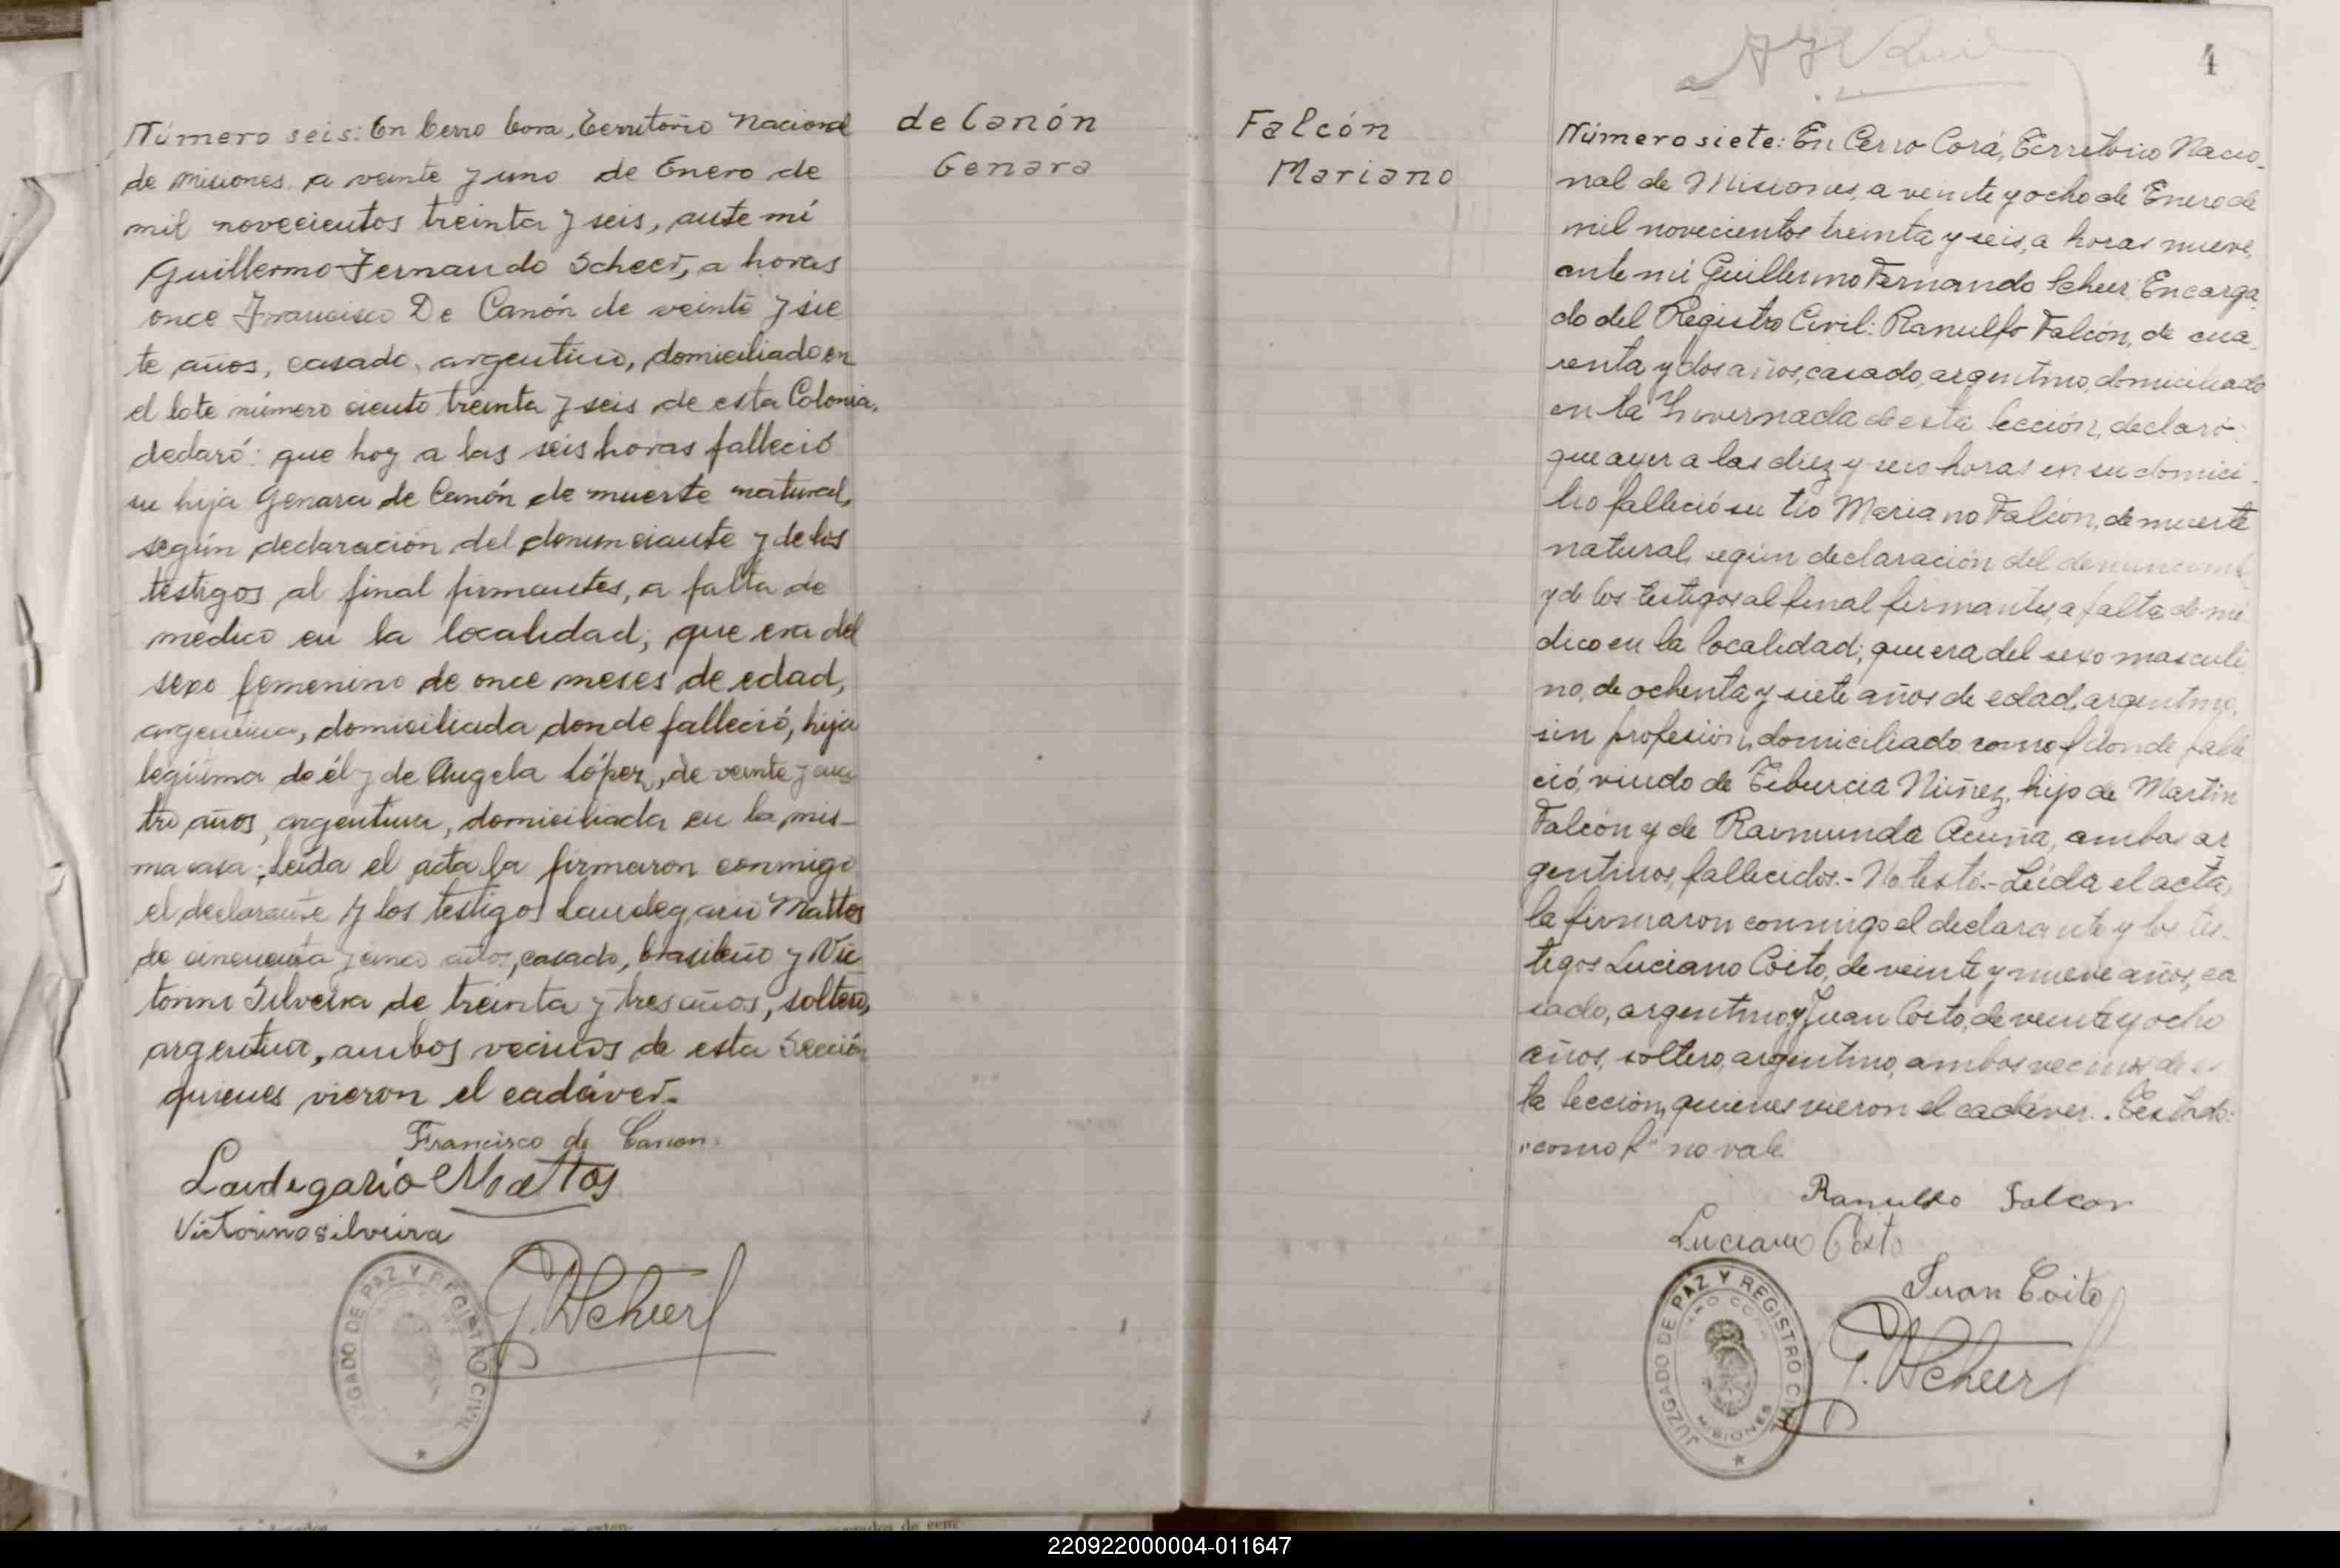 Número seis: En Cerro Cora, Territorio Nacional
de Misiones, a veinte y uno de Enero de
mil novecientos treinta y seis, ante mí
Guillermo Fernando Scheer, a horas
once Francisco De Canón de veinte y sie
te años, casado, argentino, domiciliado en
el lote número ciento treinta y seis de esta Colonia,
declaró: que hoy a las seis horas falleció
su hija Genara de Canón de muerte natural,
según declaración del denunciante y de los
testigos al final firmantes, a falta de
medico en la localidad; que era del
sexo femenino de once meses de edad,
argentina, domiciliada donde falleció, hija
legítima de él y de Angela López, de veinte y cua
tro años, argentina, domiciliada en la mis-
ma casa; Leída el acta la firmaron conmigo
el declarante y los testigos Laudegario Mattos
de cincuenta y cinco años, casado, brasileño y Vic
torino Silveira de treinta y tres años, soltero,
argentino, ambos vecinos de esta Sección
quienes vieron el cadáver.-
Francisco de Canon
Laudegario Mattos
Victorino silveira
G. F. Scheer
JUZGADO DE PAZ Y REGISTRO CIVIL
de Canón
Genara
Falcón
Mariano
4
Número siete: En Cerro Corá, Territorio Nacio-
nal de Misiones, a veinte y ocho de Enero de
mil novecientos treinta y seis, a horas nueve,
ante mí Guillermo Fernando Scheer, Encarga
do del Registro Civil: Ranulfo Falcón, de cua-
renta y dos años, casado, argentino, domiciliado
en la Invernada de esta Sección, declaró:
que ayer a las diez y seis horas en su domici-
lio falleció su tío Mariano Falcón, de muerte
natural, según declaración del denunciante
y de los testigos al final firmantes, a falta de mé
dico en la localidad; que era del sexo masculi
no, de ochenta y siete años de edad, argentino,
sin profesión, domiciliado como f donde falle
ció, viudo de Tiburcia Núñez, hijo de Martin
Falcón y de Raimunda Acuña, ambos ar
gentinos, fallecidos.- No testó.- Leída el acta,
la firmaron conmigo el declarante y los tes-
tigos Luciano Coito, de veinte y nueve años, ca
sado, argentino y Juan Coito, de veinte y ocho
años, soltero, argentino, ambos vecinos de es
ta Sección, quienes vieron el cadáver.. Testado:
"como f" no vale
Ranulfo Falcon
Luciano Coito
Juan Coito
G. F. Scheer
JUZGADO DE PAZ Y REGISTRO CIVIL
CERRO CORA
MISIONES
220922000004-011647